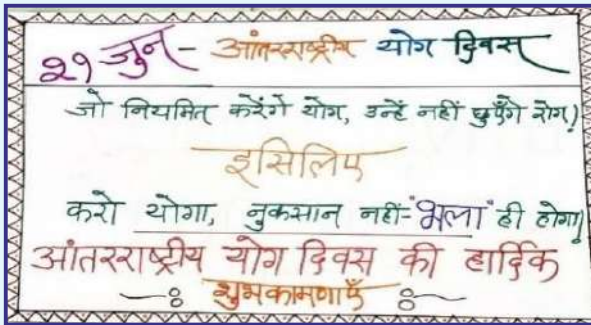 २१ जुन - आंतरराष्ट्रीय योग दिवस
जो नियमित करेंगे योग, उन्हें नहीं छुएँगे रोग!
इसिलिए
करो योगा, नुकसान नहीं- "भला" ही होगा!
आंतरराष्ट्रीय योग दिवस की हार्दिक
शुभकामणाएँ